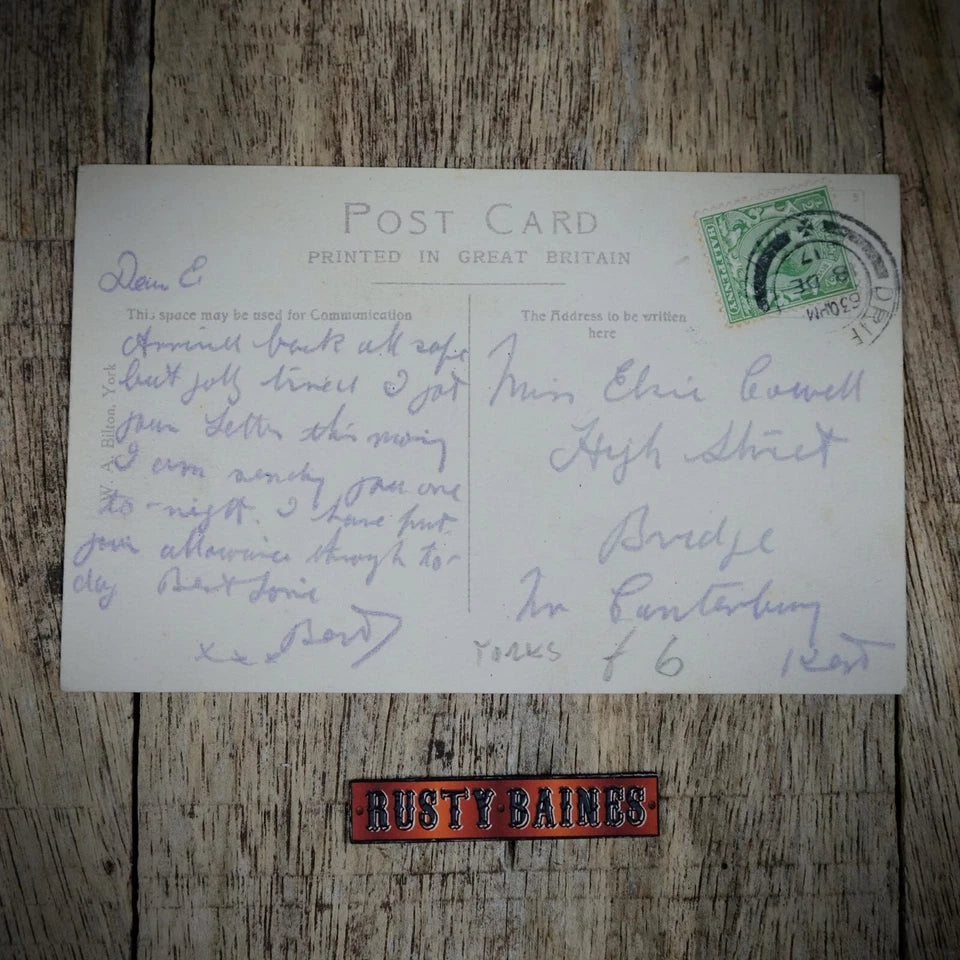 POST CARD
PRINTED IN GREAT BRITAIN
Dear E
This space may be used for Communication
Arrived back all safe
but jolly tired I got
your letter this morning
I am sending you one
to-night. I have put
your allowance through to-
day Best Love
Bert
x x x
W. A. Bilton, York
The Address to be written
here
Miss Elsie Cowell
High Street
Bridge
Nr Canterbury
Kent
YORKS £6
HALFPENNY
630PM
8 DE
17
RUSTY BAINES